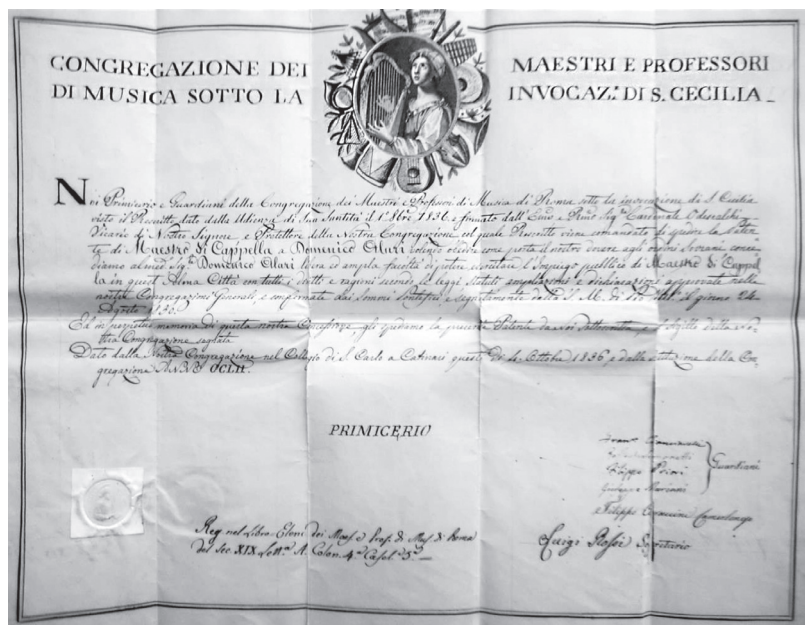 CONGREGAZIONE DEI MAESTRI E PROFESSORI
DI MUSICA SOTTO LA INVOCAZ.e DI S. CECILIA
Noi Primicerio e Guardiani della Congregazione dei Maestri e Professori di Musica di Roma sotto la invocazione di S. Cecilia
visto il Rescritto dato dalla Udienza di Sua Santità il 1836 e firmato dall' Card. Odescalchi
Vicario di Nostro Signore e Protettore della Nostra Congregazione col quale Rescritto viene comandato di spedire la Paten-
te di Maestro di Cappella a Domenico Alari volendo obedire come porta il nostro dovere agli ordini Sovrani conce-
diamo al med.o Sig.r Domenico Alari libera ed ampla facoltà di potere esercitare l'Impiego pubblico di Maestro di Cappel-
la in quest' Alma Città con tutti i dritti e ragioni secondo le leggi Statuti ampliazioni e dichiarazioni approvate nelle
nostre Congregazioni Generali, e confermate dai Sommi Pontefici e segnatamente dalla S. M. di Pio VIII il giorno 24
Agosto 1830.
Ed in perpetua memoria di questa nostra Concessione, gli spediamo la presente Patente da noi sottoscritta, e col Sigillo della No-
stra Congregazione segnata
Data dalla Nostra Congregazione nel Collegio di S. Carlo a Catinari questo dì 4. Ottobre 1836 e dalla istituzione della Con-
gregazione ANNO CCLII.
PRIMICERIO
Filippo Priori
Giuseppe Mariani
Guardiani
Filippo Camerlengo
Luigi Rossi Segretario
Reg. nel Libro dei Maes. e Prof. di Mus. di Roma
del Sec XIX Lett.a A. Colon. 4.a Casel. 5.a